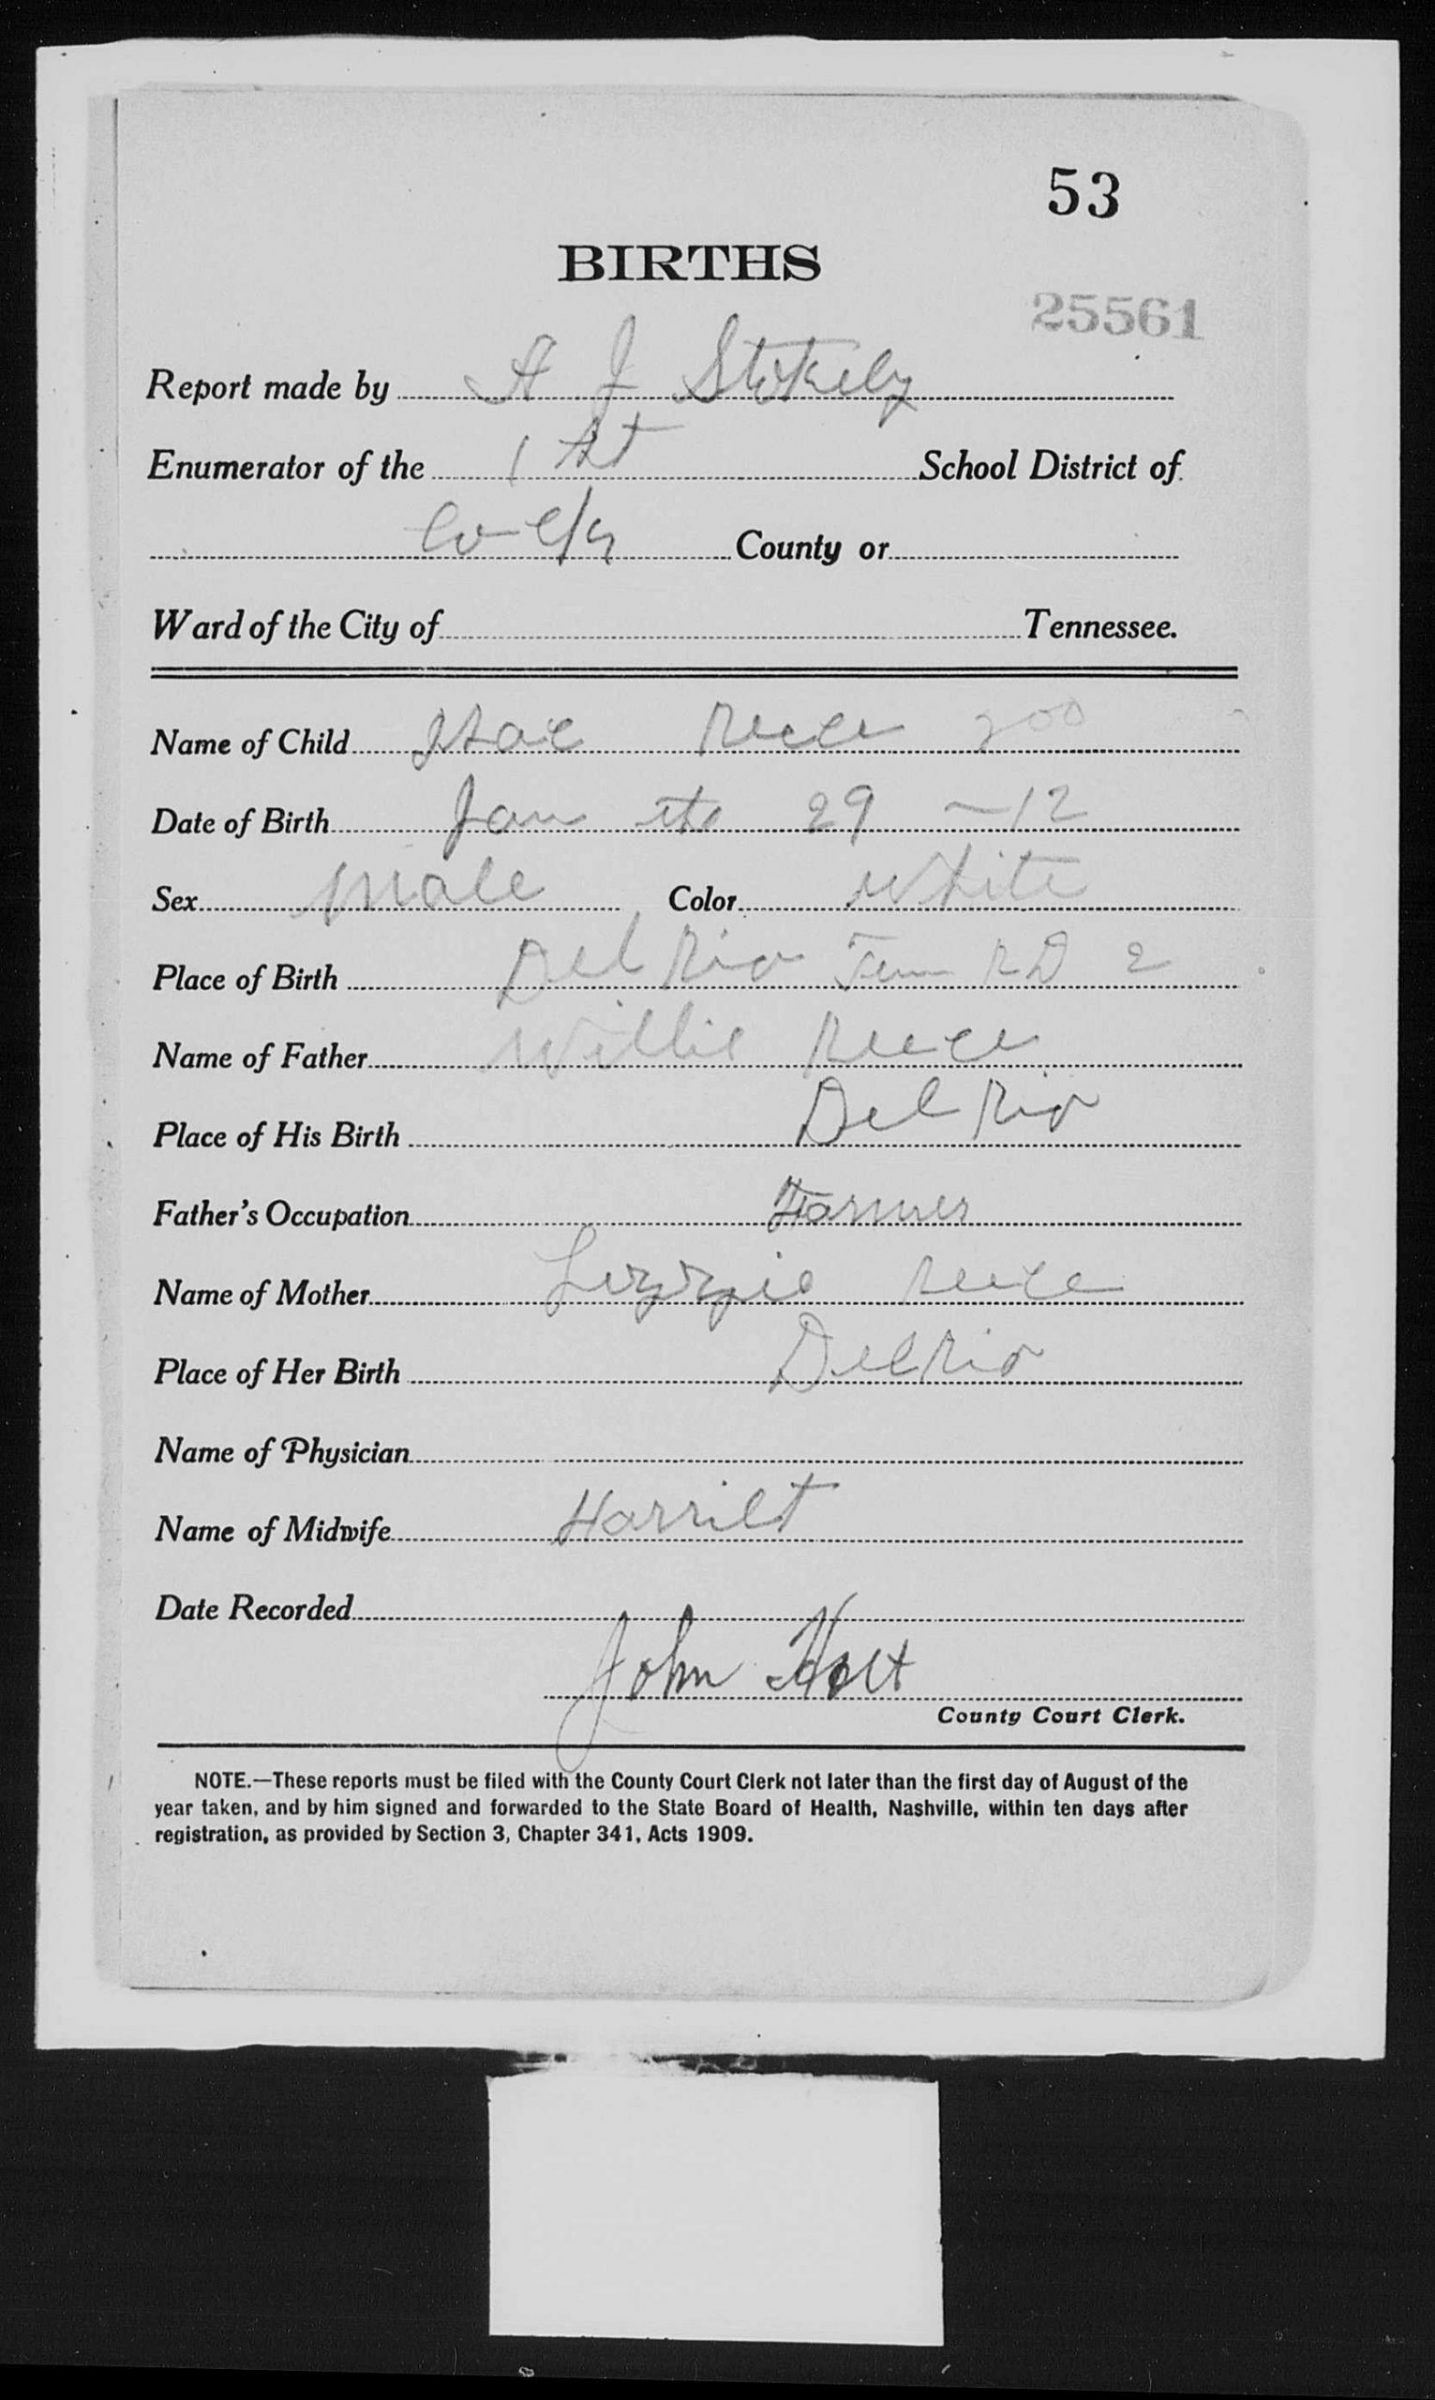 53
BIRTHS
25561
Report made by A J Stokely
Enumerator of the 1 st School District of
County or
Ward of the City of Tennessee.
Name of Child Reece 200
Date of Birth Jan the 29 -12
Sex Male Color White
Place of Birth Del Rio Tenn RD 2
Name of Father Willie Reece
Place of His Birth Del Rio
Father's Occupation Farmer
Name of Mother Lizzie Reece
Place of Her Birth Del Rio
Name of Physician
Name of Midwife Harriet
Date Recorded
John Holt
County Court Clerk.
NOTE.—These reports must be filed with the County Court Clerk not later than the first day of August of the
year taken, and by him signed and forwarded to the State Board of Health, Nashville, within ten days after
registration, as provided by Section 3, Chapter 341, Acts 1909.